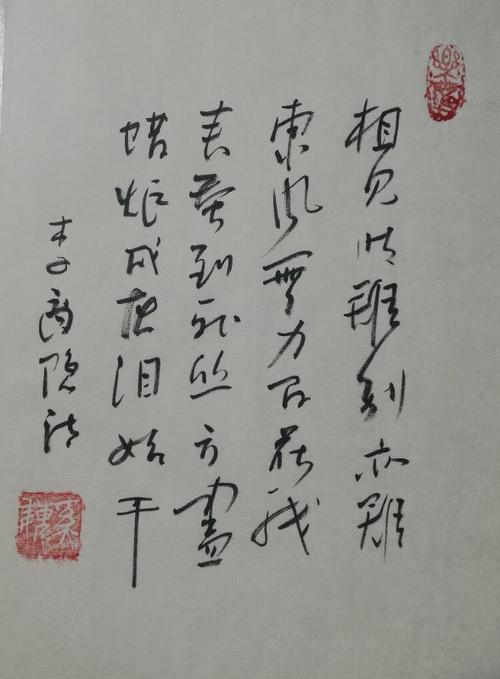 相见时难别亦难
东风無力百花残
春蚕到死丝方盡
蜡炬成灰泪始干
李商隐诗